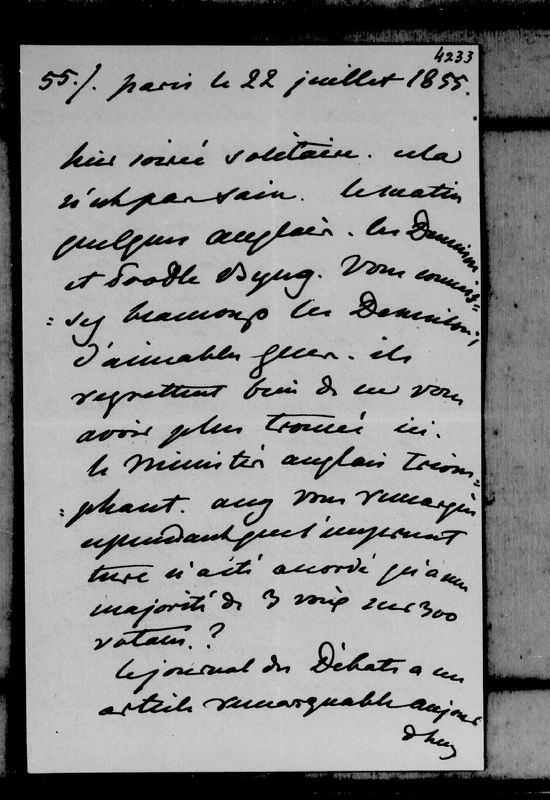 4233
55./. paris le 22 juillet 1855.
hier soirée solitaire. cela
n'est pas sain. le matin
quelques anglais. les Dawison
et Poodle Byng. Vous connais=
=sez beaucoup les Dawison,
d'aimables gens. ils
regrettent bien de ne vous
avoir plus trouvé ici.
le Ministère anglais triom=
=phant. avez vous remarqué
cependant que l'emprunt
turc n'a été accordé qu'a une
majorité de 3 voix sur 300
votans.?
le journal des Débats a un
article remarquable aujour
d'huy